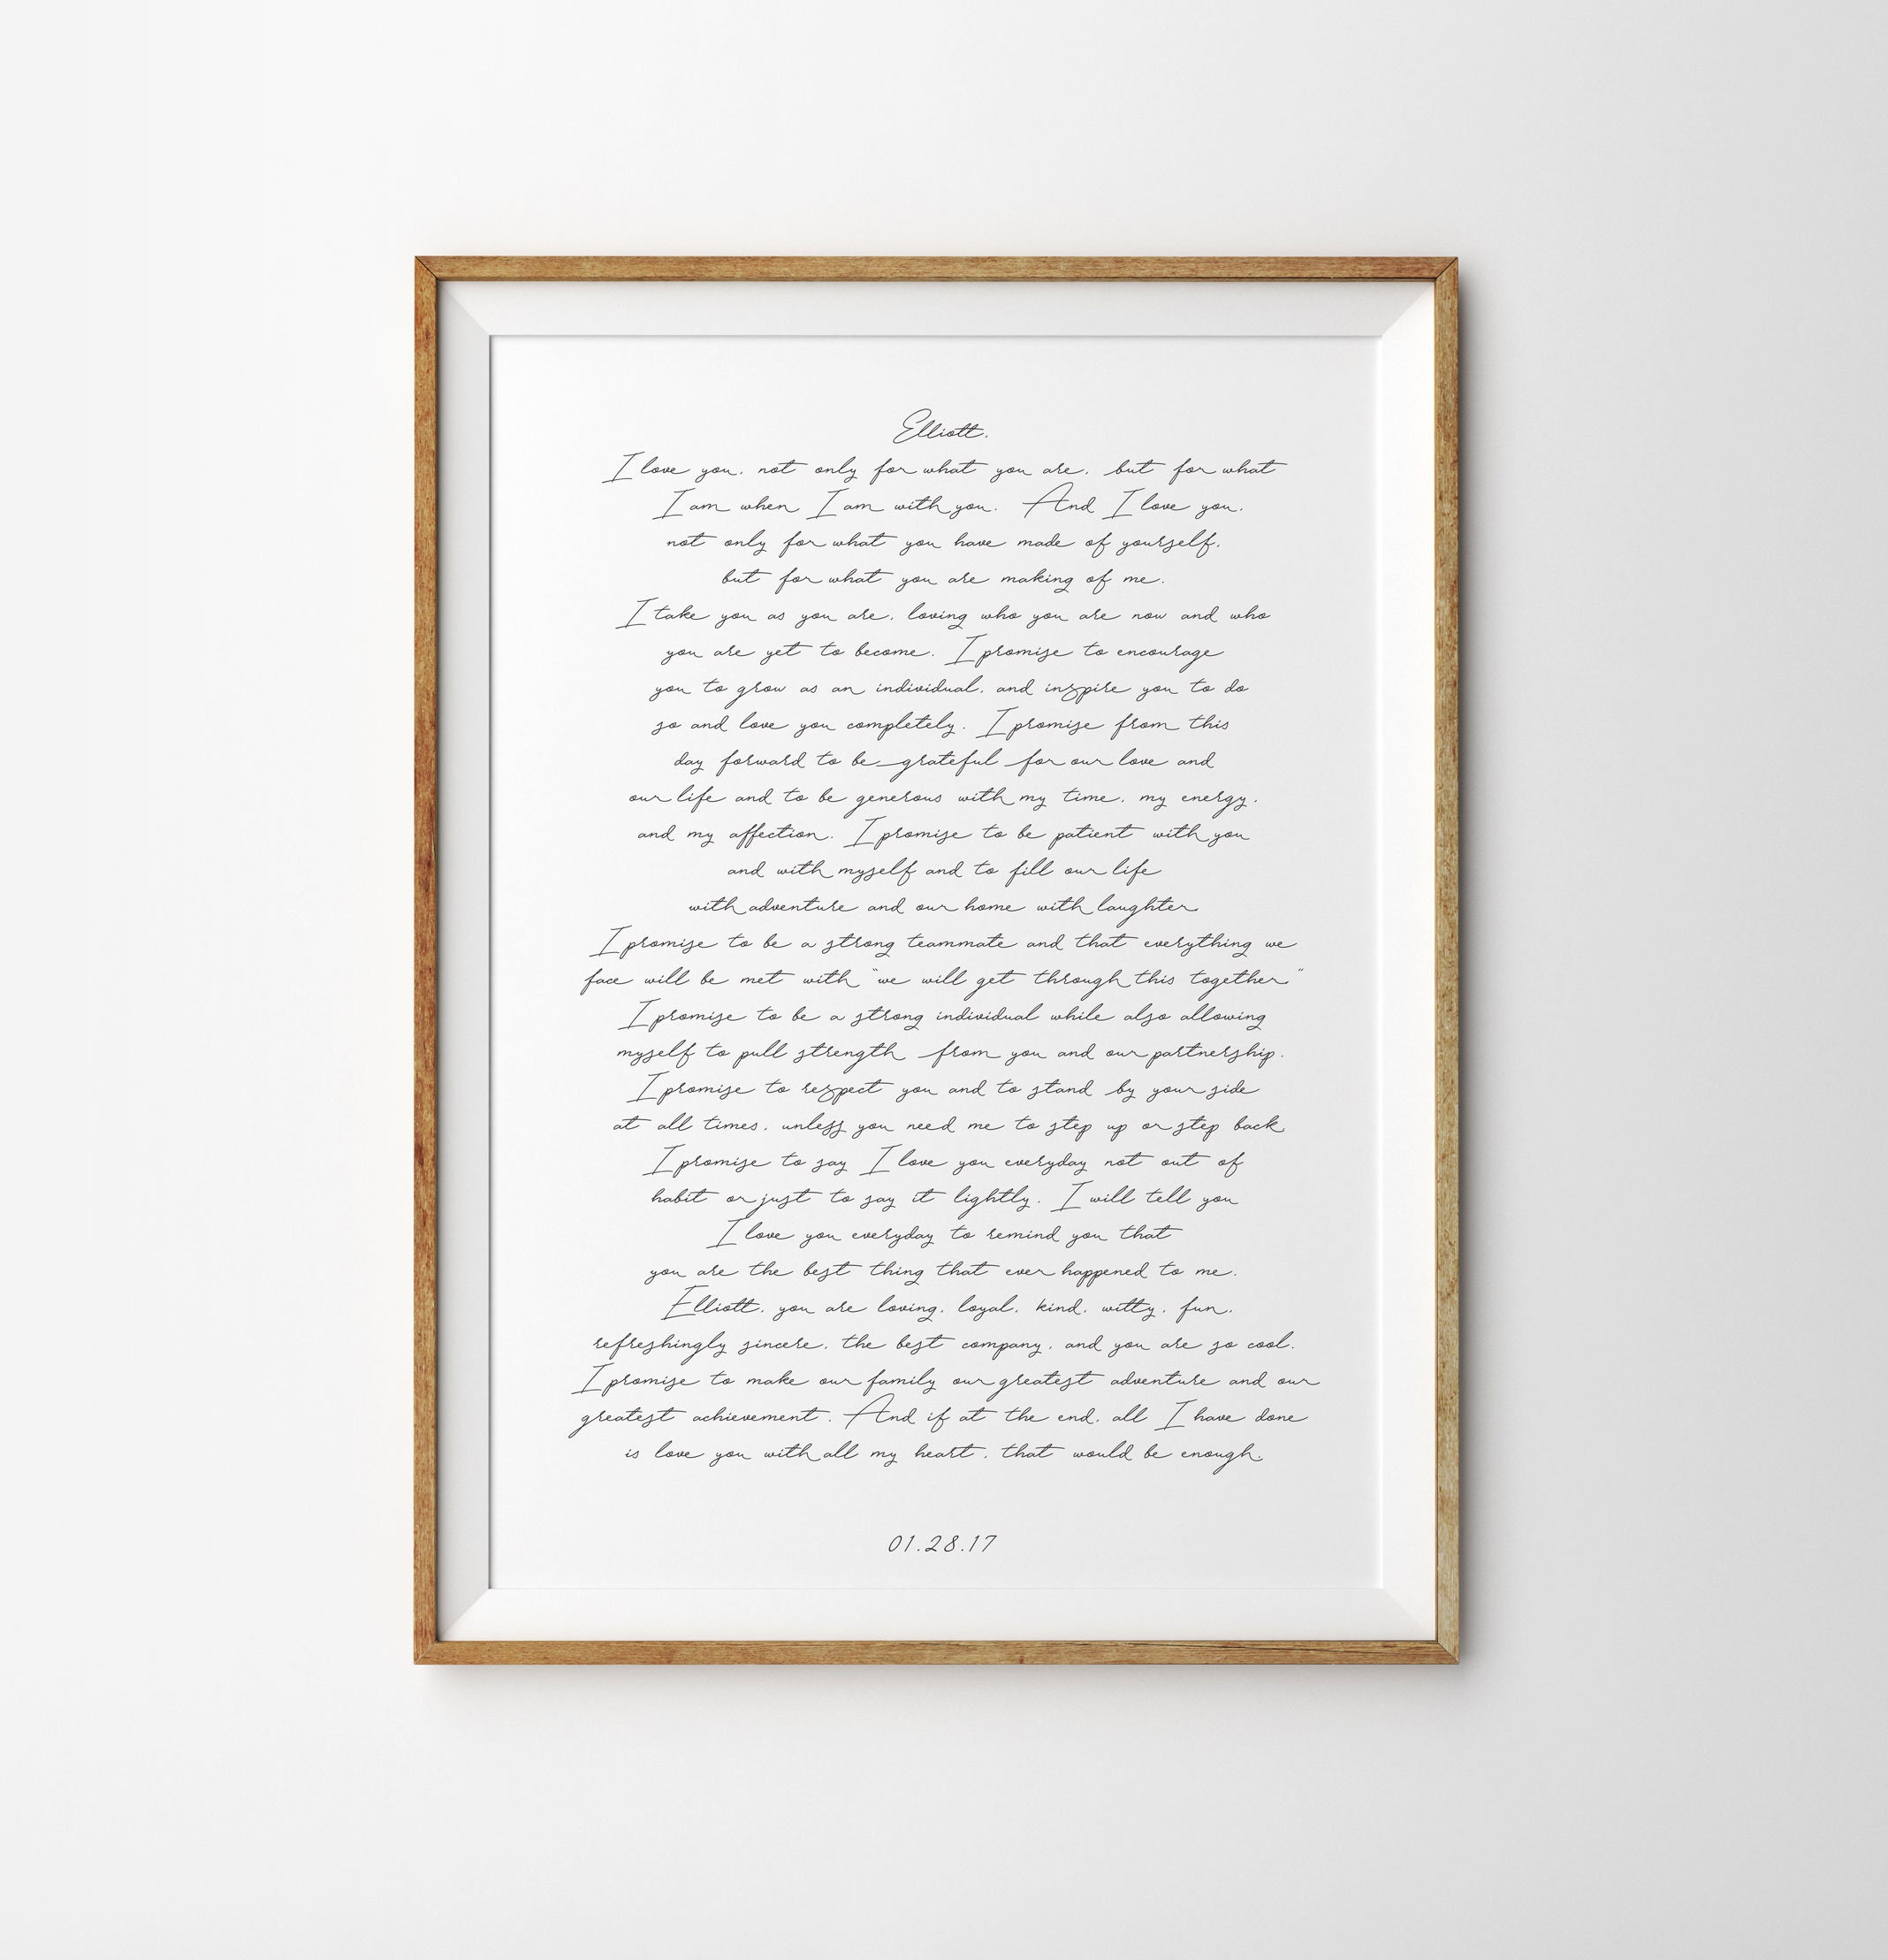 Elliott,
I love you, not only for what you are, but for what
I am when I am with you. And I love you,
not only for what you have made of yourself,
but for what you are making of me.
I take you as you are, loving who you are now and who
you are yet to become. I promise to encourage
you to grow as an individual, and inspire you to do
so and love you completely. I promise from this
day forward to be grateful for our love and
our life and to be generous with my time, my energy,
and my affection. I promise to be patient with you
and with myself and to fill our life
with adventure and our home with laughter.
I promise to be a strong teammate and that everything we
face will be met with "we will get through this together."
I promise to be a strong individual while also allowing
myself to pull strength from you and our partnership.
I promise to respect you and to stand by your side
at all times, unless you need me to step up or step back.
I promise to say I love you everyday not out of
habit or just to say it lightly. I will tell you
I love you everyday to remind you that
you are the best thing that ever happened to me.
Elliott, you are loving, loyal, kind, witty, fun,
refreshingly sincere, the best company, and you are so cool.
I promise to make our family our greatest adventure and our
greatest achievement. And if at the end, all I have done
is love you with all my heart, that would be enough.
01.28.17